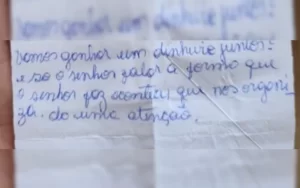 Vamos ganhar um dinheiro juntos?
é só o senhor falar a forma que
o senhor faz acontecer que nós organi
za. dá uma atenção.